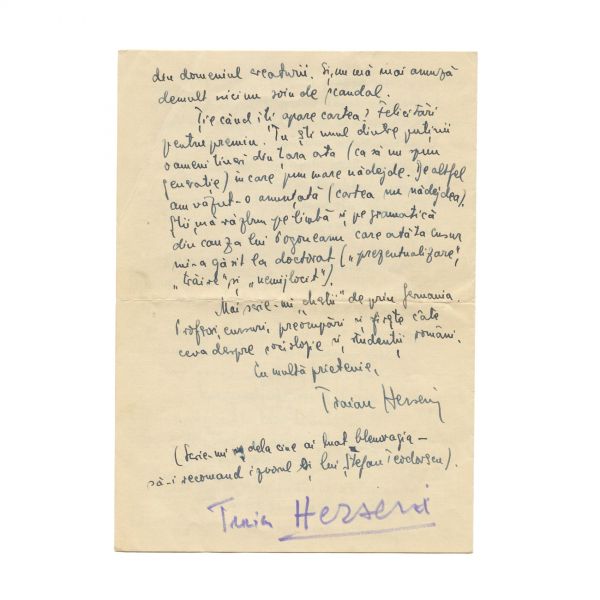 din domeniul creaturii. Și nu mă mai amuză
demult nici un soiu de scandal.
Ție când îți apare cartea? Felicitări
pentru premiu. Tu ești unul dintre puținii
oameni tineri din țara asta (ca să nu spun
generație) în care pun mare nădejde. De altfel
am văzut-o anunțată (cartea nu nădejdea).
Știi, mă răzbun pe limbă și pe gramatică
din cauza lui Pogoneanu care atâta cusur
mi-a găsit la doctorat („prezentualizare",
„trăire" și „nemijlocit").
Mai scrie-mi „chestii" de prin Germania.
Profesori, cursuri, preocupări și firește câte
ceva despre sociologie și studenții români.
Cu multă prietenie,
Traian Herseni
(Scrie-mi dela cine ai luat blenoragia –
să-i recomand izvorul și lui Ștefan Teodorescu).
Traian Herseni